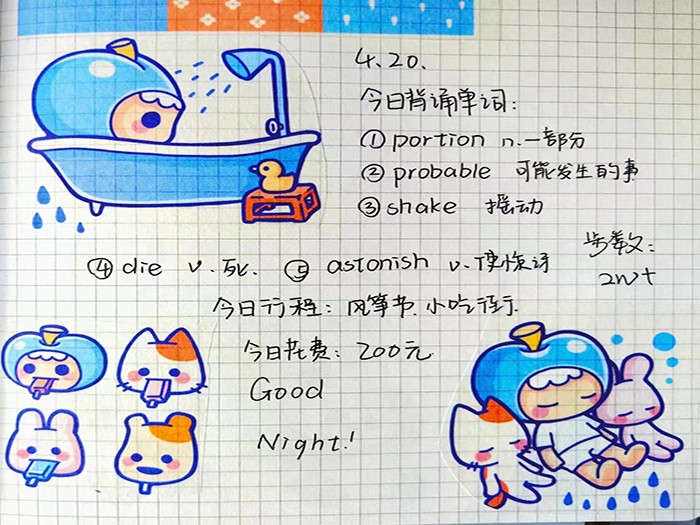 4.20.
今日背诵单词:
① portion n.一部分
② probable 可能发生的事
③ shake 摇动
④ die v.死. ⑤ astonish v.使惊讶
步数:
2w+
今日行程: 风筝节.小吃街
今日花费: 200元
Good
Night!